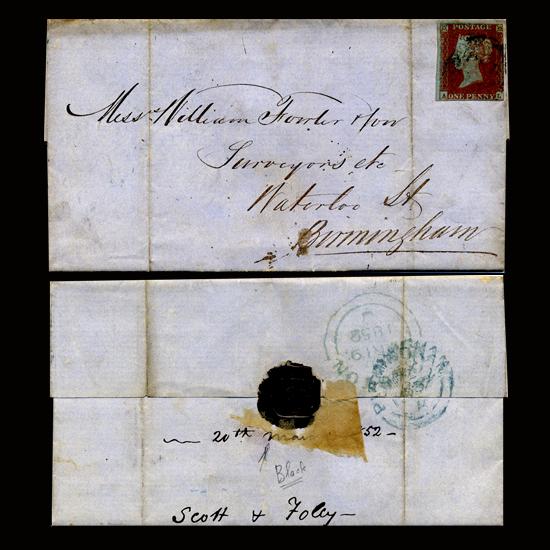 POSTAGE
ONE PENNY
Messrs William Fowler & Son
Surveyors etc
Waterloo St
Birmingham
1852
20th March /52
Black
Scott & Foley